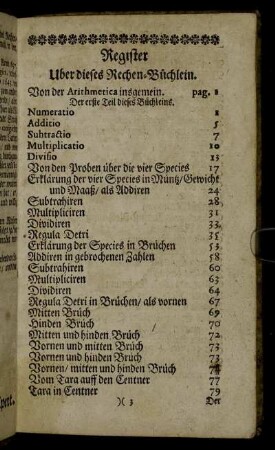 Register
Uber dieses Rechen-Büchlein.
Von der Arithmetica insgemein. pag. 1
Der erste Teil dieses Büchleins.
Numeratio 1
Additio 5
Subtractio 7
Multiplicatio 10
Divisio 13
Von den Proben über die vier Species 17
Erklärung der vier Species in Müntz/Gewicht
und Maaß/ als Addiren 24
Subtrahiren 28
Multipliciren 31
Dividiren 33
Regula Detri 35
Erklärung der Species in Brüchen 53
Addiren in gebrochenen Zahlen 58
Subtrahiren 60
Multipliciren 63
Dividiren 64
Regula Detri in Brüchen/ als vornen 67
Mitten Brüch 69
Hinden Brüch 70
Mitten und hinden Brüch 72
Vornen und mitten Brüch 73
Vornen und hinden Brüch 73
Vornen/ mitten und hinden Brüch
Vom Tara auff den Centner 77
Tara in Centner 79
)( 3 Der
pert.